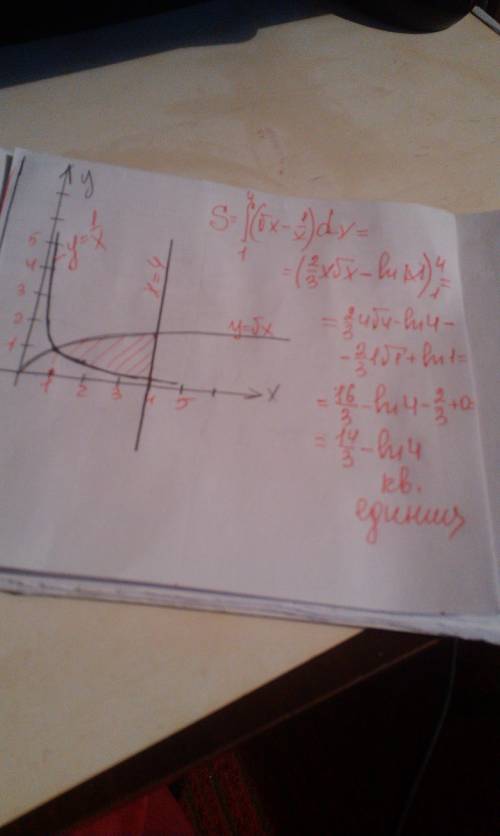 y
y=1/x
5
4
3
2
1
x=4
y=√x
1 2 3 4 5 x
S=∫₁⁴(√x-1/x)dx=
=(2/3x√x-ln|x|)₁⁴=
=2/3 4√4-ln4-
-2/3 1√1+ln1=
=16/3-ln4-2/3+0=
=14/3-ln4
кв.
единиц